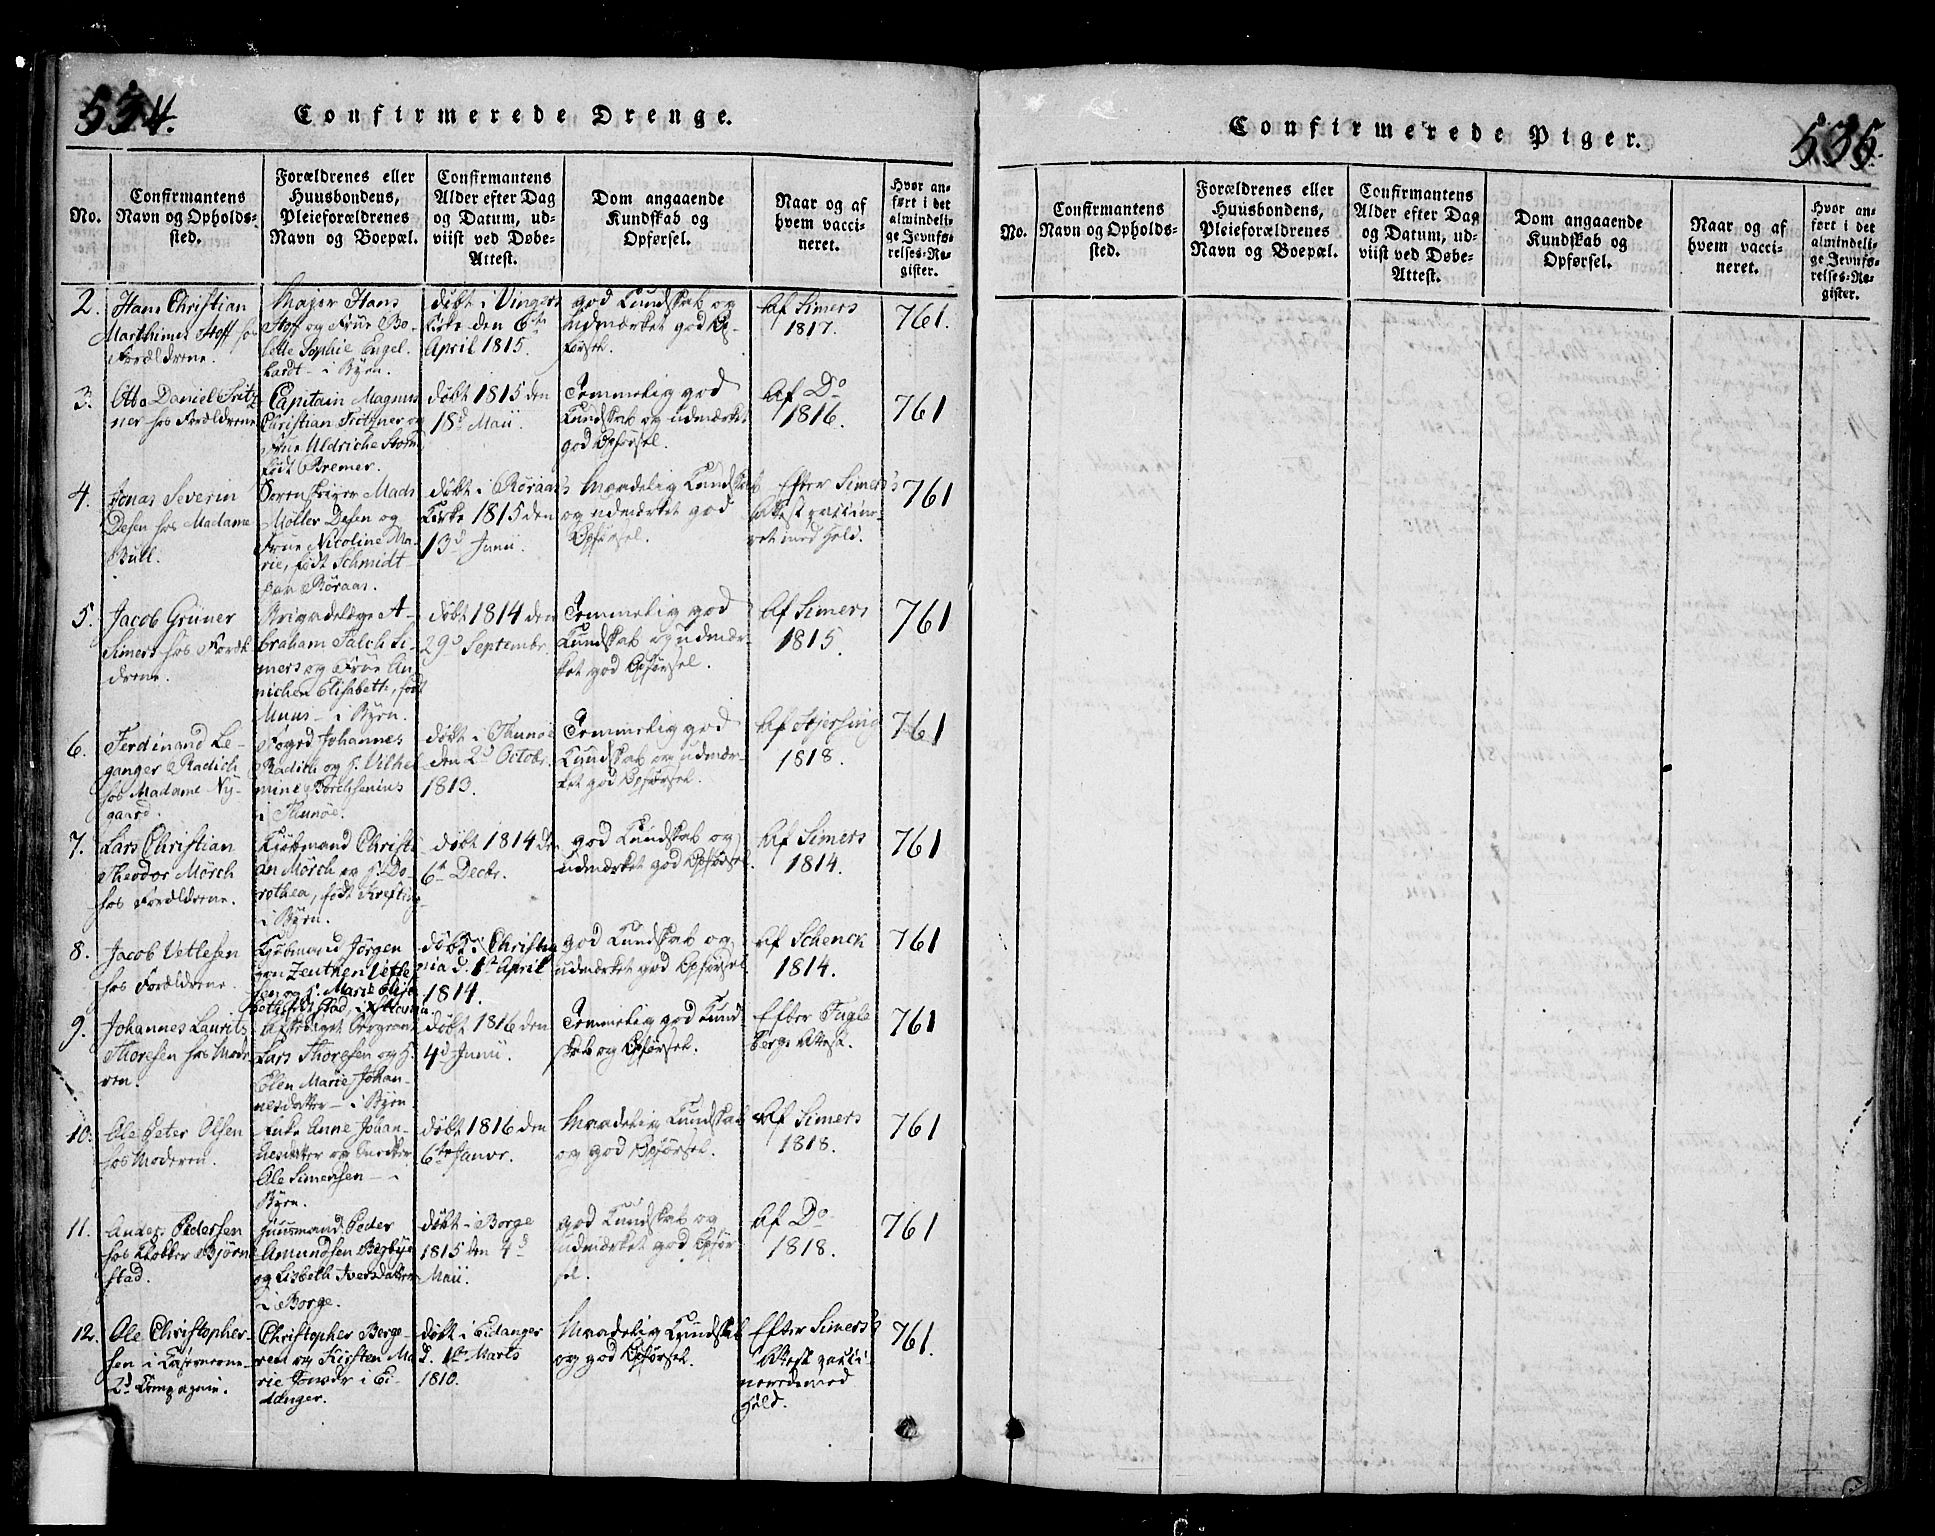 534.
Confirmerede Drenge.
No.
Confirmantens
Navn og Opholds-
sted.
Forældrenes eller
Huusbondens,
Pleieforældrenes
Navn og Boepæl.
Confirmantens
Alder efter Dag
og Datum, ud-
viist ved Døbe-
Attest.
Dom angaaende
Kundskab og
Opførsel.
Naar og af
hvem vacci-
neret.
Hvor an-
ført i det
almindeli-
ge Jevnfø-
relses-Re-
gister.
2.
Hans Christian
Marthinus Hoff hos
Forældrene.
Major Hans
Hoff og Frue Bo-
lette Sophie Engel-
hardt - i Byen.
døbt i Vingers
Kirke den 6te
April 1815
god Kundskab og
udmærket god Op-
førsel.
Af Simers
1817.
761.
3.
Otto Daniel Fritz-
ner hos Forældrene
Capitain Magnus
Christian Fritzner og
Frue Uldriche Storm
født Bremer.
døbt 1815 den
18d Maii.
Temmelig god
Kundskab og udmærket
god Opførsel.
Af Do
1816.
761
4.
Jonas Severin
Desen hos Madame
Bull.
Sorenskriver Mads
Møller Desen og
Frue Nicoline Ma-
rie, født Schmidt
paa Røraas.
døbt i Røraas's
Kirke 1815 den
13d Junii.
Maadelig Kundskab
og udmærket god
Opførsel.
Efter Simers's
Attest vaccine-
ret med Held.
761
5.
Jacob Grüner
Simers hos Foræl-
drene.
Brigadelæge A-
braham Falch Si-
mers og Frue An-
nichen Elisabeth, født
Muus - i Byen.
døbt 1814 den
29d Septembr.
Temmelig god
Kundskab og udmær-
ket god Opførsel.
Af Simers
1815.
761
6.
Ferdinand Le-
ganger Radich
hos Madame Ny-
gaard.
Foged Johannes
Radich og F. Vilhel
mine Borchsenius
i Thunøe.
døbt i Thunøe
den 2d Octobr.
1813.
Temmelig god
Kundskab og udmær-
ket god Opførsel.
Af Stjersing
1818.
761
7.
Lars Christian
Theodor Mørch
hos Forældrene.
Kjøbmand Christi
an Mørch og F. Do-
rothea, født
i Byen.
døbt 1814 den
6te Decbr.
god Kundskab og
udmærket god Opførsel.
Af Simers
1814.
761
8.
Jacob Vetlesen
hos Forældrene.
Kjøbmand Jørgen
von Zeuthen Vetle-
sen og F. Marie Elisa-
beth
døbt i Christia
nia d. 1te April
1814.
god Kundskab og
udmærket god Opførsel.
Af Schenck
1814.
761
9.
Johannes Laurits
Thoresen hos Mode-
ren.
Lars Thoresen og F.
Elen Marie Johan-
nesdatter - i Byen.
døbt 1816 den
4d Junii.
Temmelig god Kund-
skab og Opførsel.
Efter Fugle
bergs Attest.
761
10.
Ole Peter Olsen
hos Moderen.
Enke Anne Johan-
nesdatter og Snedker
Ole Simensen - i
Byen.
døbt 1816 den
6te Janvr.
Maadelig Kundskab
og god Opførsel.
Af Simers
1818.
761
11.
Anders Pedersen
hos Klokker Bjørn
stad.
Huusmand Peder
Amundsen Begbye
og Lisbeth Iversdatter
i Borge.
døbt i Borge
1815 den 4d
Maii.
god Kundskab og
udmærket god Opfør-
sel.
Af Do
1818.
761
12.
Ole Christopher-
sen i Casernerne
2d Compagnie.
Christopher Berge-
sen og Kirsten Ma
rie Jensdr i Ei-
danger.
døbt i Eidanger
d. 1te Marts
1810.
Maadelig Kundskab
og god Opførsel.
Efter Simers's
Attest vacci-
neret med
Held.
761.
535
Confirmerede Piger.
No.
Confirmantens
Navn og Opholds-
sted.
Forældrenes eller
Huusbondens,
Pleieforældrenes
Navn og Boepæl.
Confirmantens
Alder efter Dag
og Datum, ud-
viist ved Døbe-
Attest.
Dom angaaende
Kundskab og
Opførsel.
Naar og af
hvem vacci-
neret.
Hvor an-
ført i det
almindeli-
ge Jevnfø-
relses-Re-
gister.